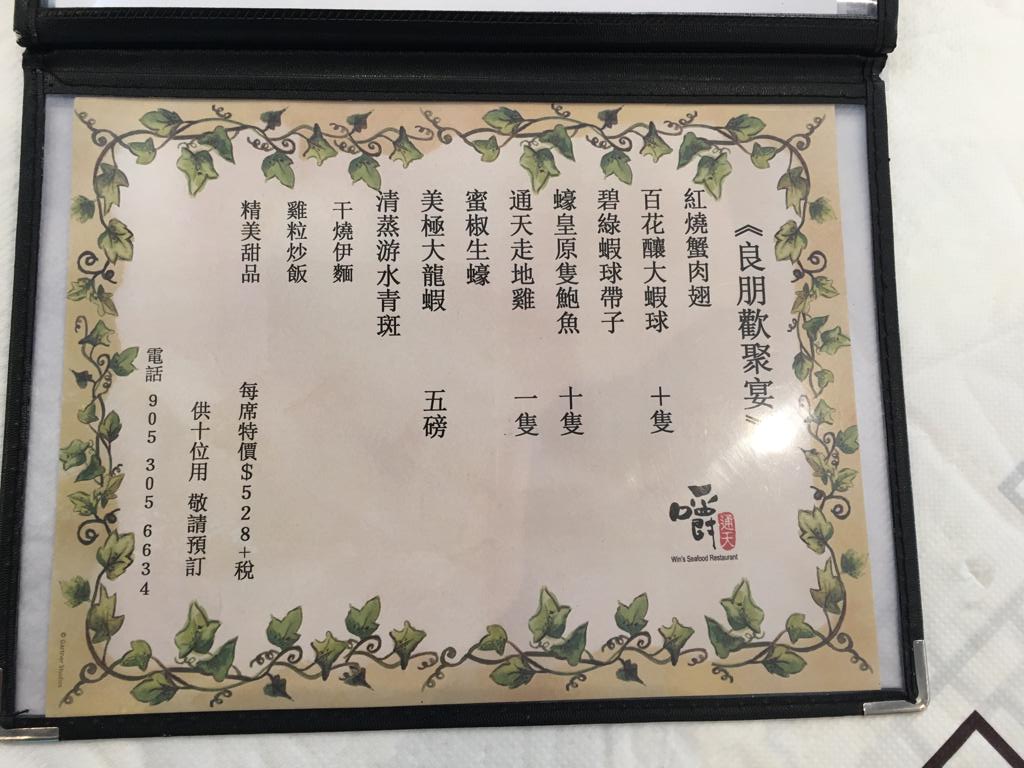 《良朋歡聚宴》
紅燒蟹肉翅
百花釀大蝦球 十隻
碧綠蝦球帶子
蠔皇原隻鮑魚 十隻
通天走地雞 一隻
蜜椒生蠔
美極大龍蝦 五磅
清蒸游水青斑
干燒伊麵
雞粒炒飯
精美甜品
每席特價$528+税
供十位用 敬請預訂
電話 905 305 6634
嚼
通天
Win's Seafood Restaurant
© Gartner Studios